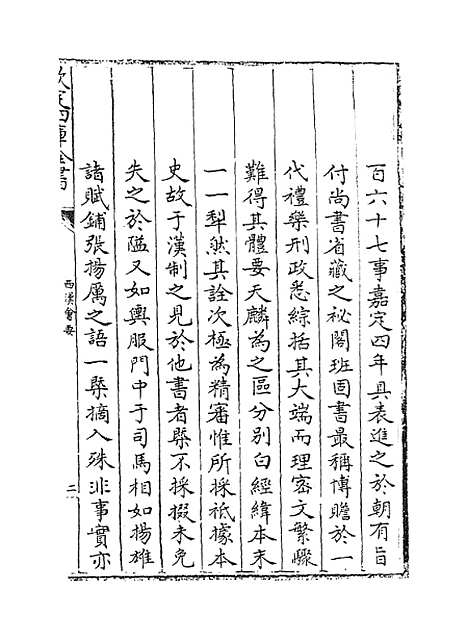 百六十七事嘉定四年具表進之於朝有旨
付尚書省藏之秘閣班固書最稱博贍於一
代禮樂刑政悉綜括其大端而理密文繁驟
難得其體要天麟為之區分別白經緯本末
一一犁然其詮次極為精審惟所採祗據本
史故于漢制之見於他書者槩不採掇未免
失之於隘又如輿服門中于司馬相如揚雄
諸賦鋪張揚厲之語一槩摘入殊非事實亦
欽定四庫全書
西漢會要
二